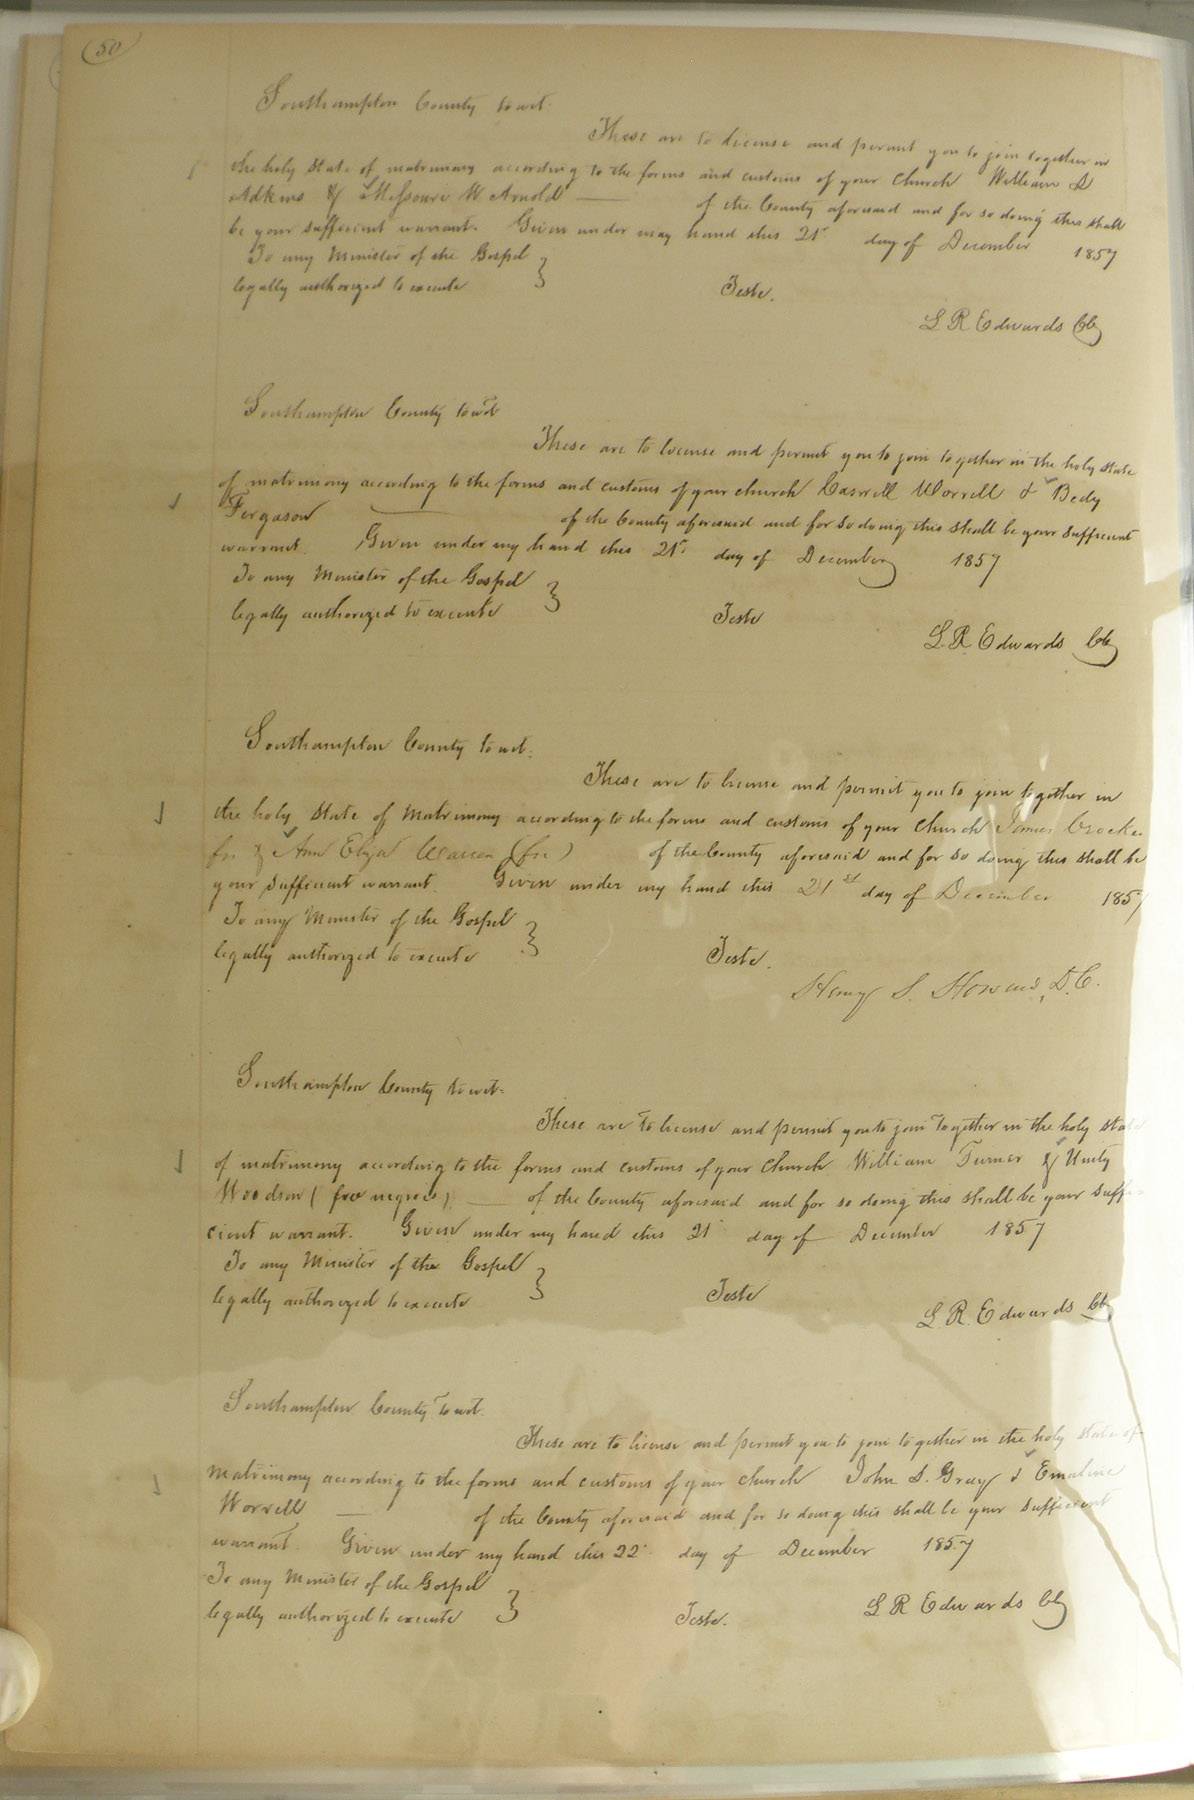 50
Southampton County to wit.
These are to license and permit you to join together in
the holy state of matrimony according to the forms and customs of your church William
Adkins & Missouri W Arnold of the County aforesaid and for so doing this shall
be your sufficient warrant. Given under my hand this 21st day of December 1857
To any Minister of the Gospel
legally authorized to execute } Teste.
L R Edwards Clk
Southampton County to wit
These are to license and permit you to join together in the holy state
of matrimony according to the forms and customs of your church Caswell Worrell & Bedy
Fergason of the County aforesaid and for so doing this shall be your sufficient
warrant. Given under my hand this 21st day of December 1857
To any Minister of the Gospel
legally authorized to execute } Teste
L. R. Edwards Clk
Southampton County to wit.
These are to license and permit you to join together in
the holy state of Matrimony according to the forms and customs of your church James Crocker
fn & Ann Eliza Warren (fn) of the County aforesaid and for so doing this shall be
your sufficient warrant. Given under my hand this 21st day of December 1857
To any Minister of the Gospel
legally authorized to execute } Teste.
Henry S. D.C.
Southampton County to wit.
These are to license and permit you to join together in the holy state
of matrimony according to the forms and customs of your church William Turner & Unity
Woodson (free negroes) of the County aforesaid and for so doing this shall be your suffi
cient warrant. Given under my hand this 21 day of December 1857
To any Minister of the Gospel
legally authorized to execute } Teste
L. R. Edwards Clk
Southampton County to wit.
These are to license and permit you to join together in the holy state of
Matrimony according to the forms and customs of your church John S. Gray & Emaline
Worrell of the County aforesaid and for so doing this shall be your sufficient
warrant. Given under my hand this 22 day of December 1857
To any Minister of the Gospel
legally authorized to execute } Teste. L R Edwards Clk